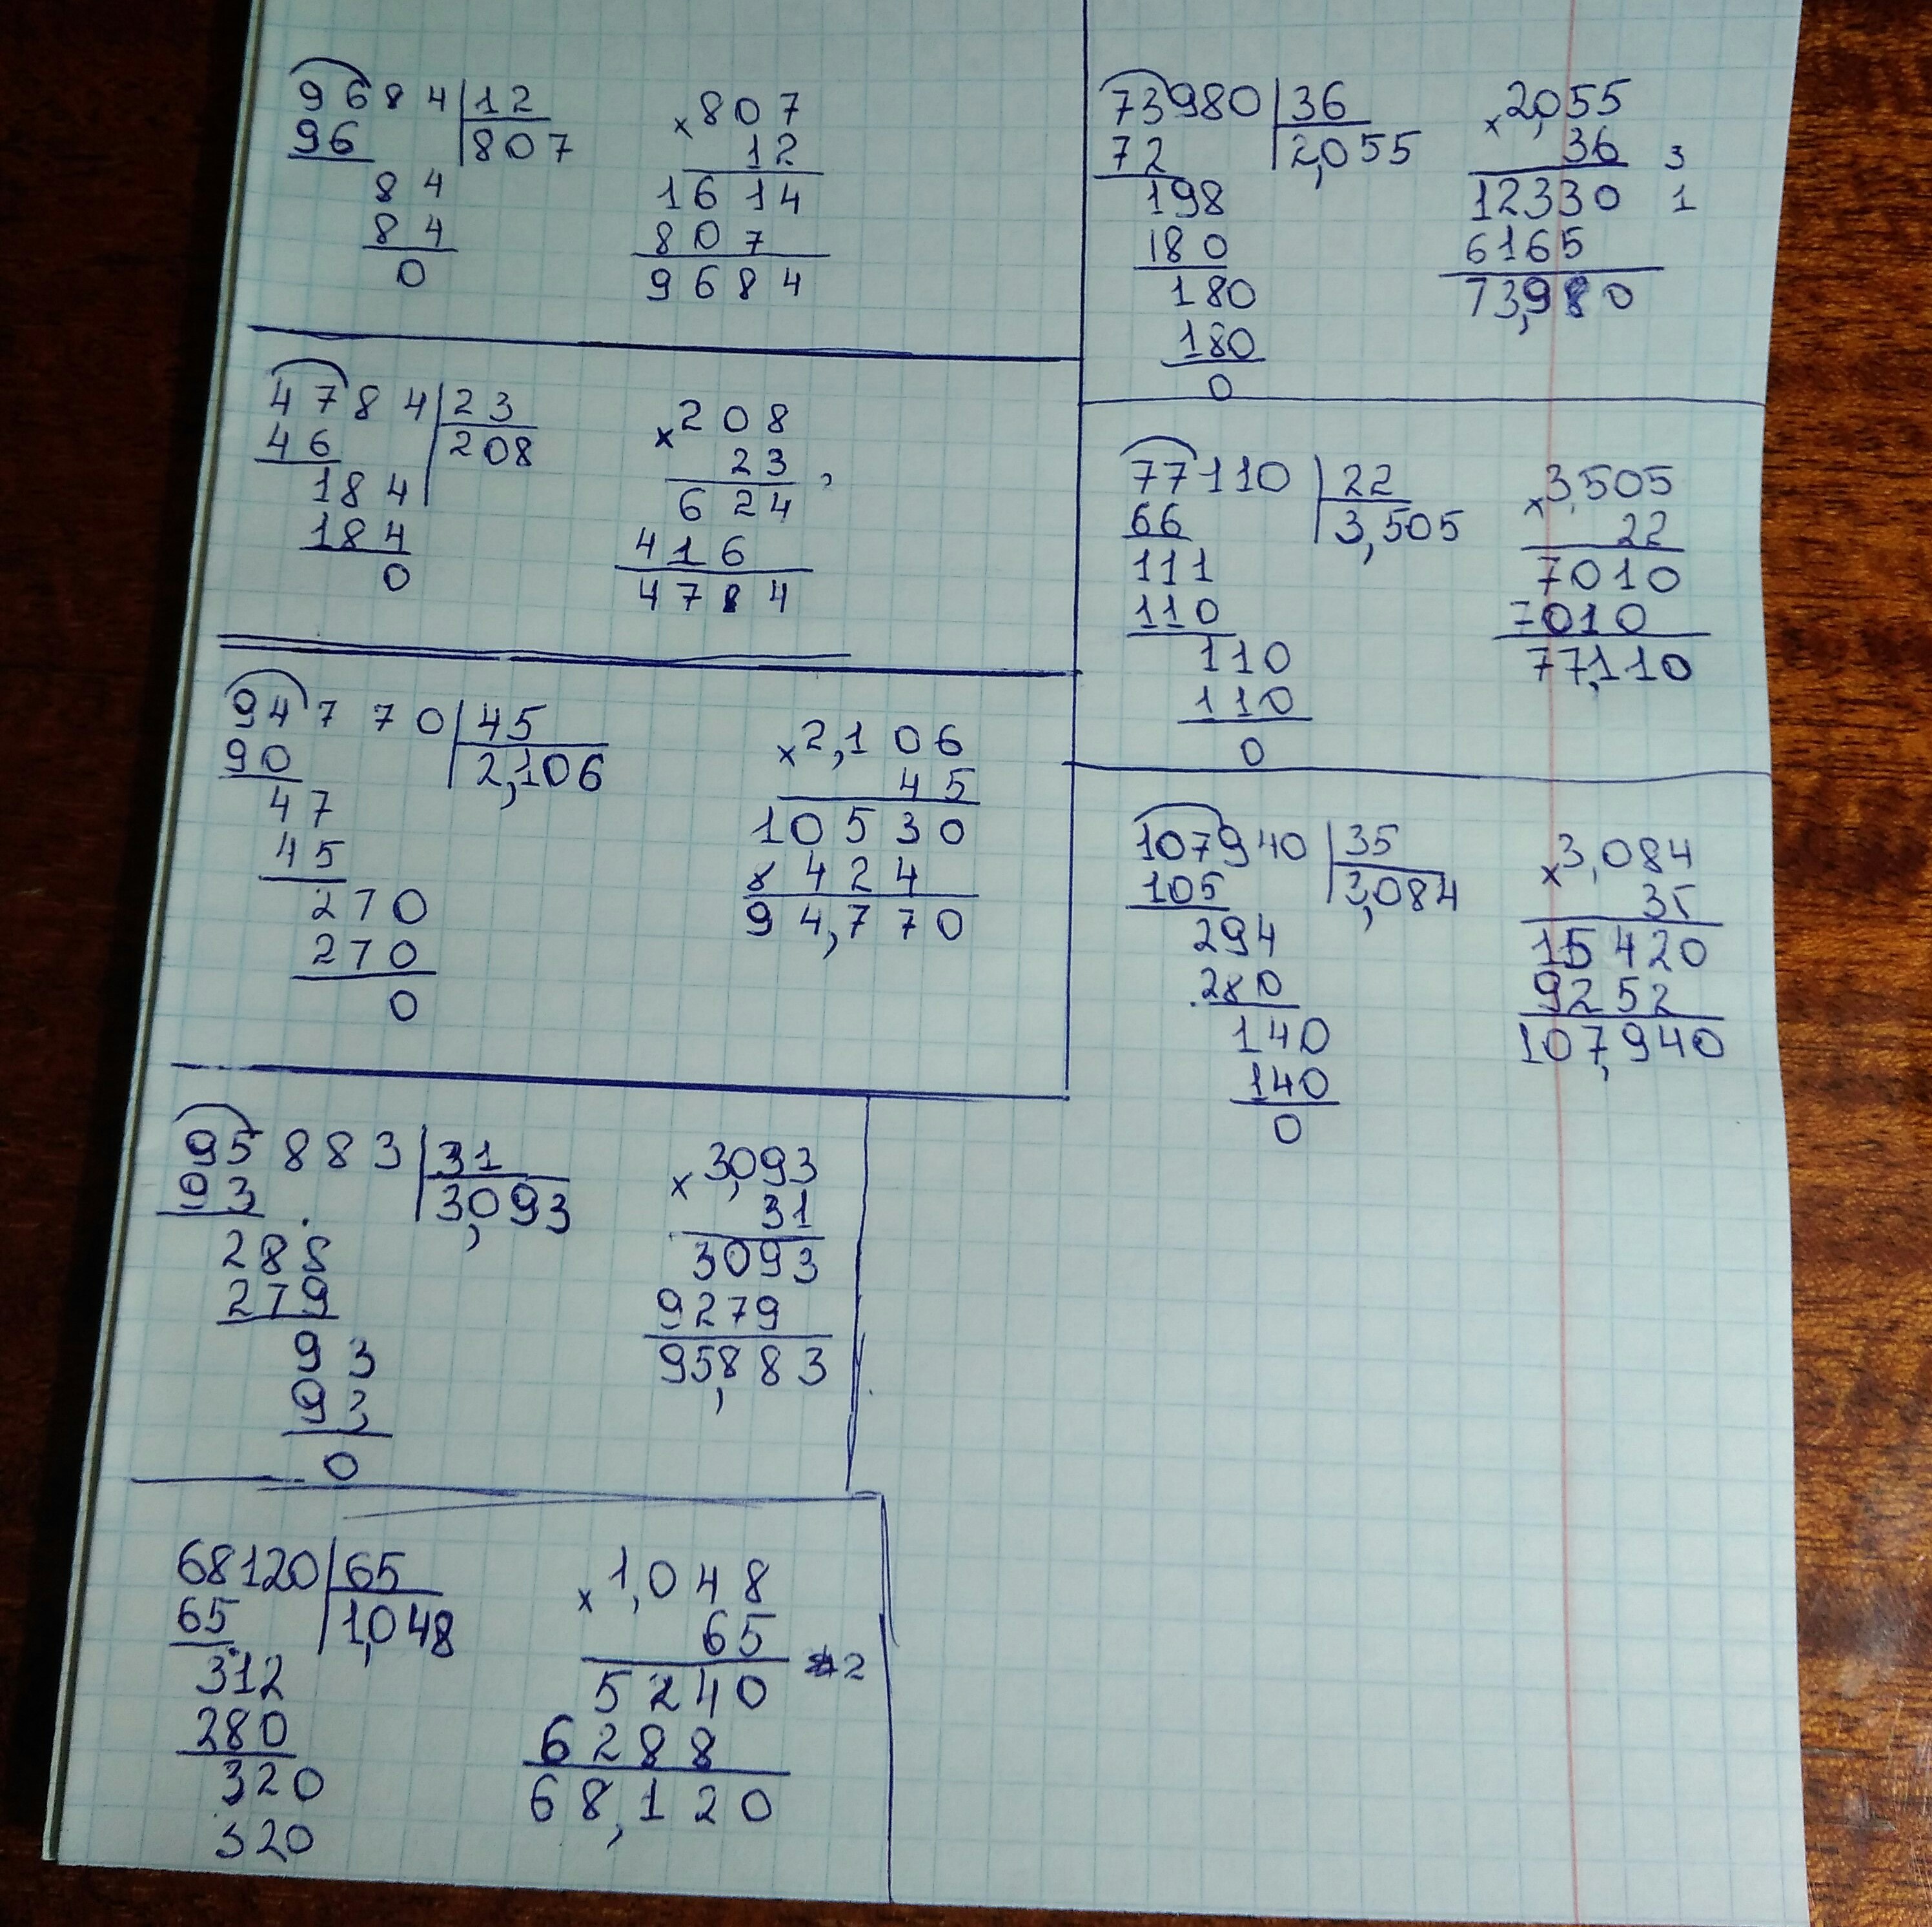 9684 12
96 807
84
84
0
× 807
12
1614
807
9684
4784 23
46 208
184
184
0
× 208
23
624
416
4784
94770 45
90 2,106
47
45
270
270
0
× 2,106
45
10530
8424
94,770
95883 31
93 3,093
288
279
93
93
0
× 3,093
31
3093
9279
95,883
68120 65
65 1,048
312
280
320
320
× 1,048
65
2
5240
6288
68,120
73980 36
72 2,055
198
180
180
180
0
× 2,055
36 3
12330 1
6165
73,980
77110 22
66 3,505
111
110
110
110
0
× 3,505
22
7010
7010
77,110
107940 35
105 3,084
294
280
140
140
0
× 3,084
35
15420
9252
107,940